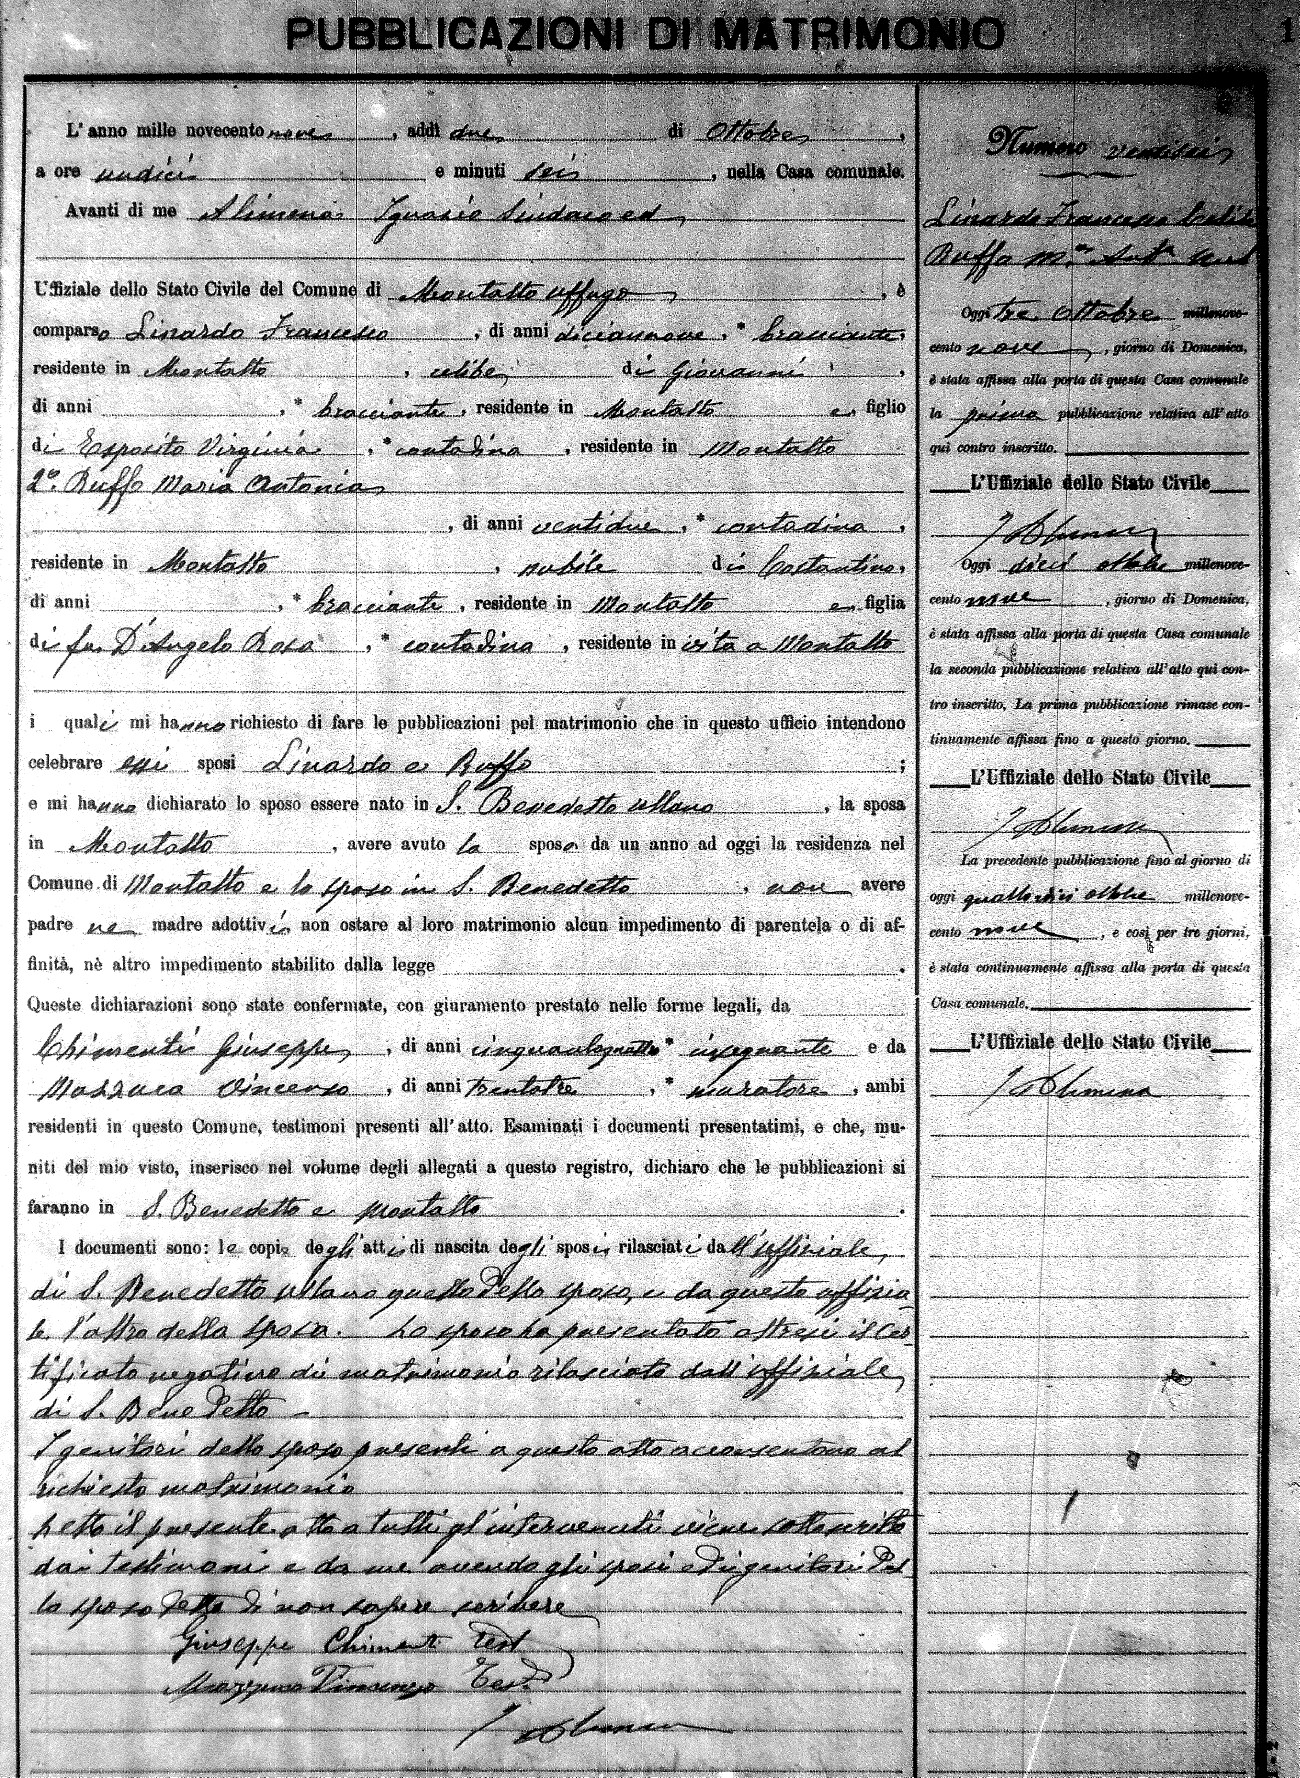 PUBBLICAZIONI DI MATRIMONIO
1
L'anno mille novecento nove, addì due di Ottobre,
a ore undici e minuti seis, nella Casa comunale.
Avanti di me Alimena Ignazio Sindaco ed
Uffiziale dello Stato Civile del Comune di Montalto Uffugo, è
comparso Linardo Francesco, di anni diciannove, * bracciante,
residente in Montalto, celibe, di Giovanni,
di anni , * bracciante, residente in Montalto e, figlio
di Esposito Virginia, * contadina, residente in Montalto
2º. Ruffo Maria Antonia
, di anni ventidue, * contadina,
residente in Montalto, nubile di Costantino,
di anni , * bracciante, residente in Montalto e, figlia
di fu D'Angelo Rosa, * contadina, residente in vita a Montalto
i quali mi hanno richiesto di fare le pubblicazioni pel matrimonio che in questo ufficio intendono
celebrare essi sposi Linardo e Ruffo ;
e mi hanno dichiarato lo sposo essere nato in S. Benedetto Ullano, la sposa
in Montalto, avere avuto la sposa da un anno ad oggi la residenza nel
Comune di Montalto e lo sposo in S. Benedetto, non avere
padre ne madre adottivi, non ostare al loro matrimonio alcun impedimento di parentela o di af-
finità, nè altro impedimento stabilito dalla legge .
Queste dichiarazioni sono state confermate, con giuramento prestato nelle forme legali, da
Chimenti Giuseppe, di anni cinquantaquattro * insegnante e da
Mazzuca Vincenzo, di anni trentatre, * muratore, ambi
residenti in questo Comune, testimoni presenti all'atto. Esaminati i documenti presentatimi, e che, mu-
niti del mio visto, inserisco nel volume degli allegati a questo registro, dichiaro che le pubblicazioni si
faranno in S. Benedetto e Montalto .
I documenti sono: le copie degli atti di nascita degli sposi rilasciati dall'uffiziale
di S. Benedetto Ullano quello dello sposo, e da questo uffizia-
le l'altro della sposa. Lo sposo ha presentato altresì il Cer-
tificato negativo di matrimonio rilasciato dall'uffiziale
di S. Benedetto –
I genitori dello sposo presenti a questo atto acconsentono al
richiesto matrimonio
Letto il presente atto a tutti gl'intervenuti viene sottoscritto
dai testimoni e da me avendo gli sposi ed i genitori del-
lo sposo detto di non sapere scrivere
Giuseppe Chimenti Test
Mazzuca Vincenzo Test.
I Alimena
Numero ventisei
Linardo Francesco celibe
Ruffo M.ª Ant.ª nub
Oggi tre ottobre millenove-
cento nove, giorno di Domenica,
è stata affissa alla porta di questa Casa comunale
la prima pubblicazione relativa all'atto
qui contro inscritto.
L'Uffiziale dello Stato Civile
I Alimena
Oggi dieci ottobre millenove-
cento nove, giorno di Domenica,
è stata affissa alla porta di questa Casa comunale
la seconda pubblicazione relativa all'atto qui con-
tro inscritto. La prima pubblicazione rimase con-
tinuamente affissa fino a questo giorno.
L'Uffiziale dello Stato Civile
I Alimena
La precedente pubblicazione fino al giorno di
oggi quattordici ottobre millenove-
cento nove, e così per tre giorni,
è stata continuamente affissa alla porta di questa
Casa comunale.
L'Uffiziale dello Stato Civile
I Alimena